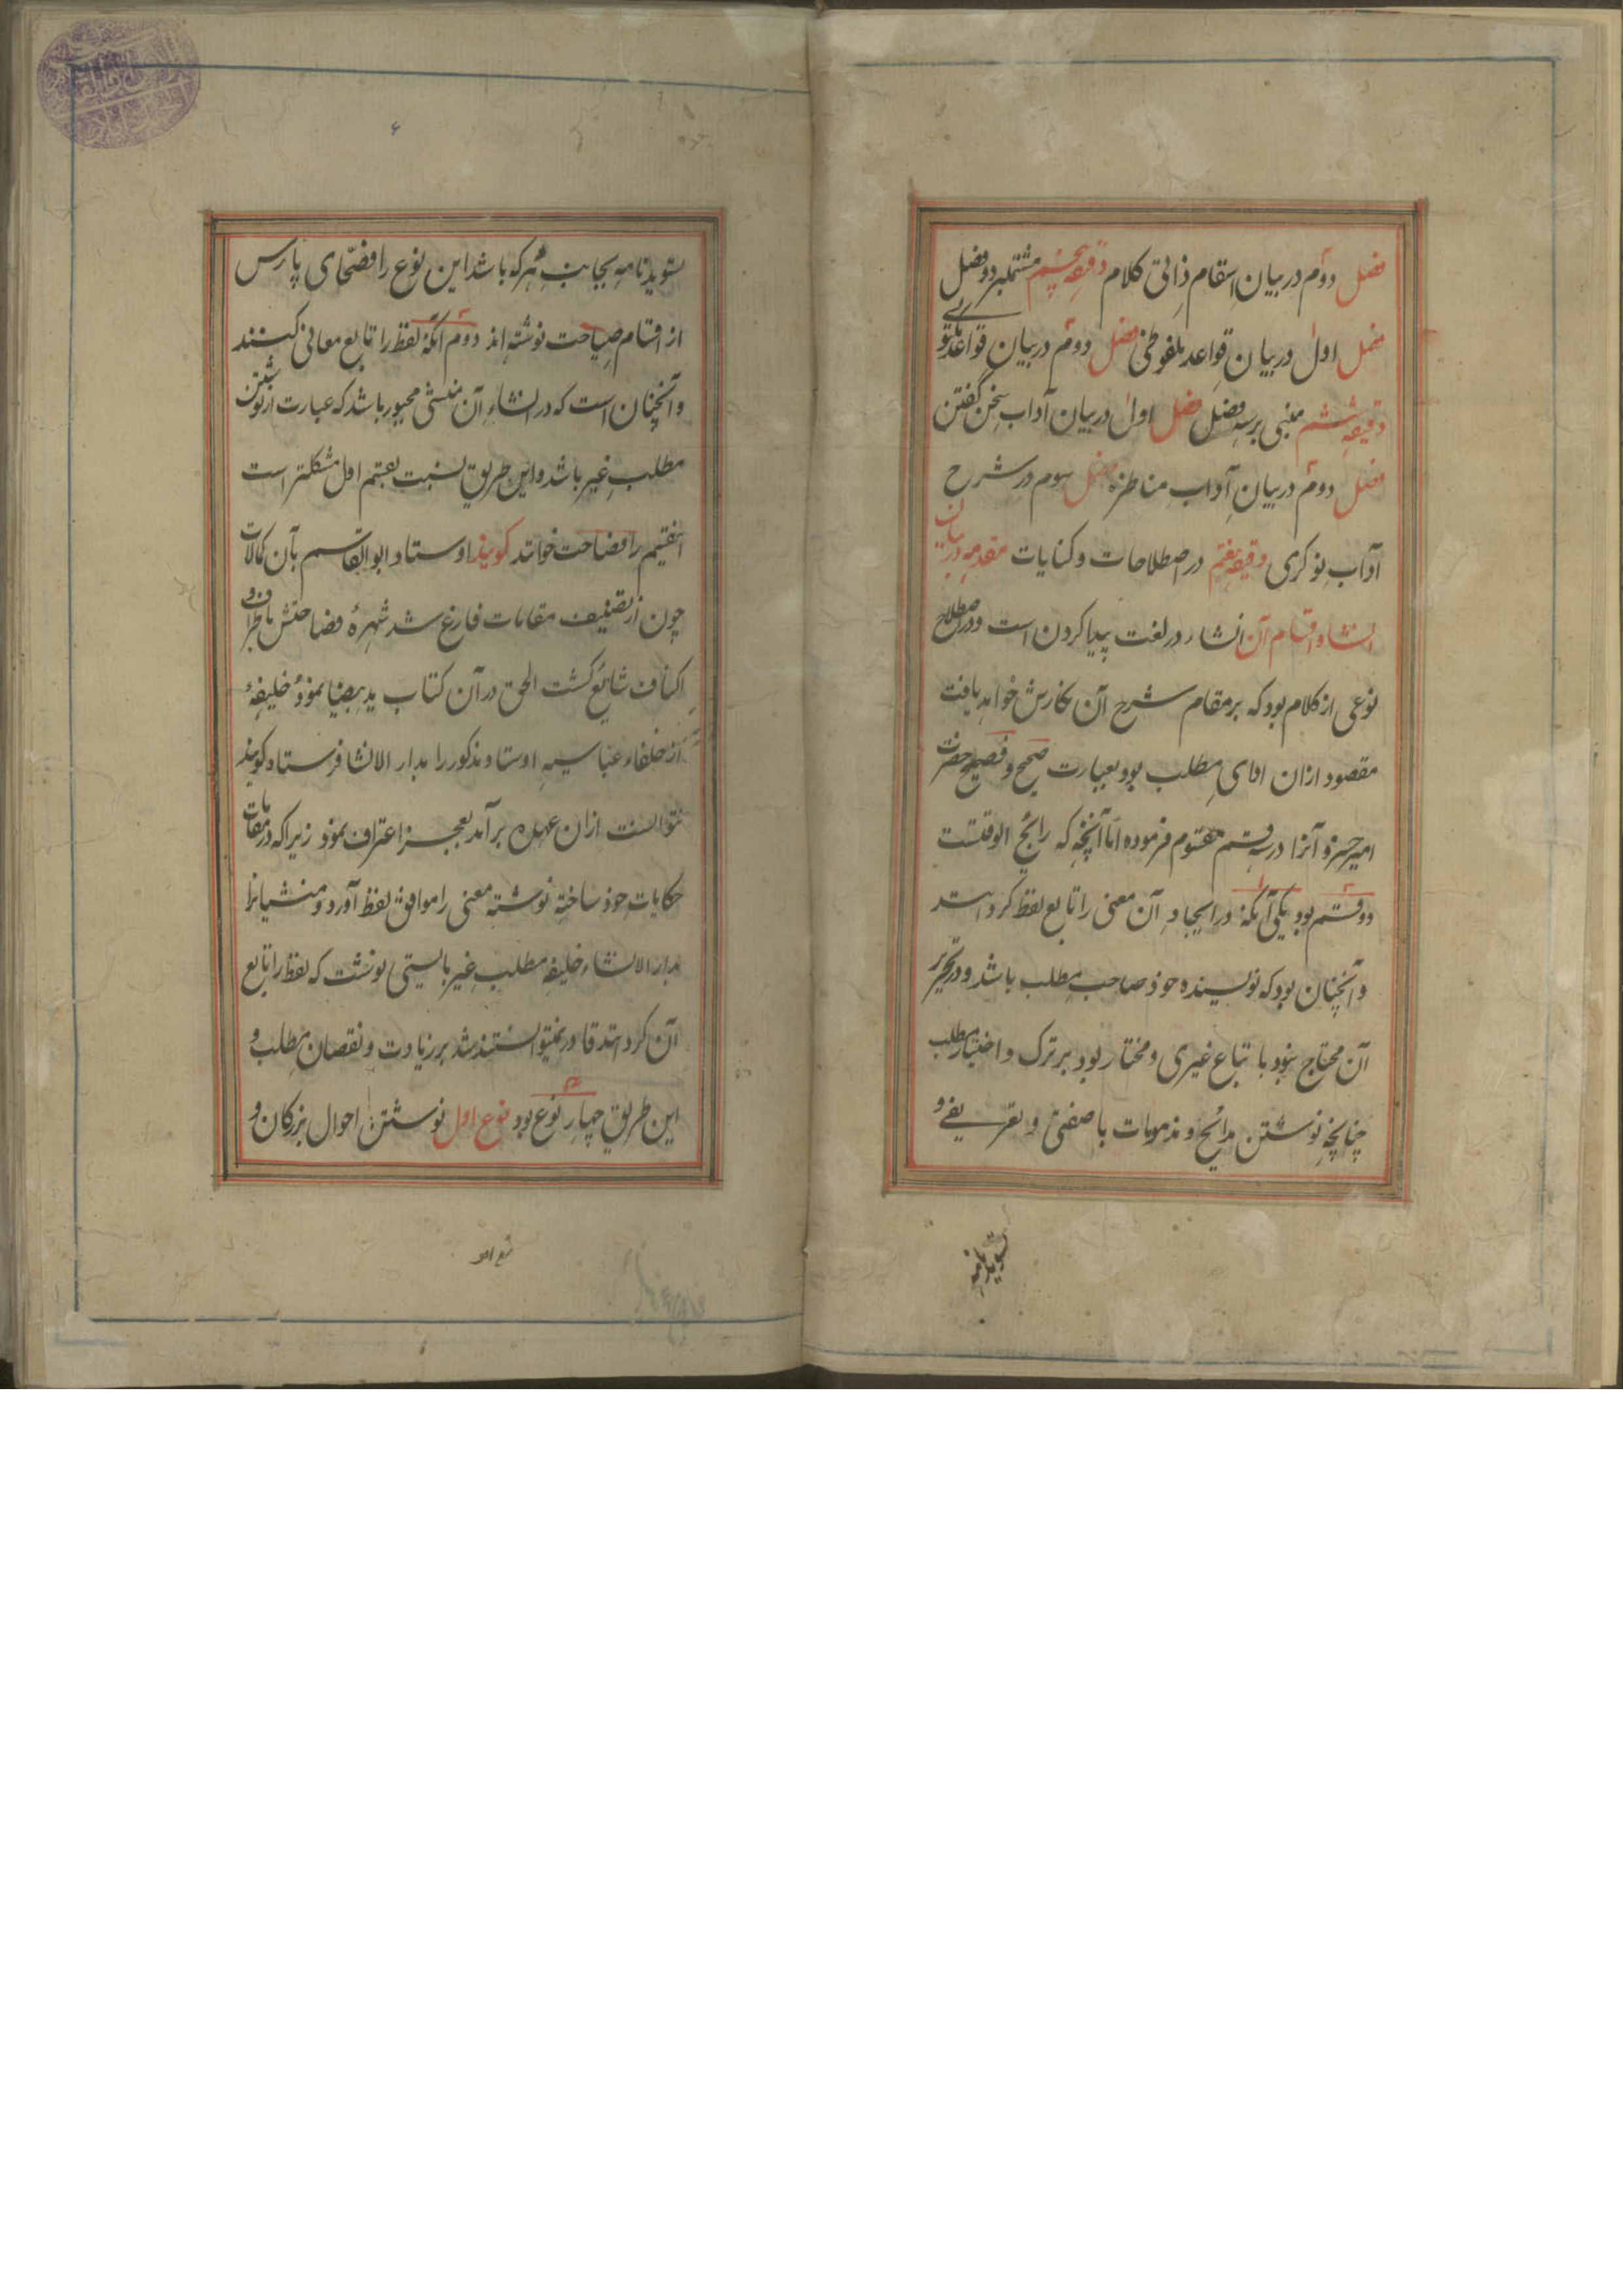 فصل دوم در بیان اسقام ذاتی کلام دقیقه پنجم مشتملبر دو فصل
فصل اول در بیان قواعد ملفوظی فصل دوم در بیان قواعد
دقیقه ششم مبنی بر سه فصل فصل اول در بیان آداب سخن گفتن
فصل دوم در بیان آداب مناظره فصل سوم در شرح
آداب نوکری دقیقه هفتم در اصطلاحات و کنایات مقدمه در بیان
انشا و اقسام آن انشاء در لغت پیدا کردن است و در اصطلاح
نوعی از کلام بود که بر مقام شرح آن نگارش خواهد یافت
مقصود ازان ادای مطلب بود بعبارت صحیح و فصیح حضرت
امیر خسرو آنرا در سه قسم مقسوم فرموده اما آنچه که رائج الوقتست
دو قسم بود یکی آنکه در ایجاد آن معنی را تابع لفظ کرده اند
و آنچنان بود که نویسنده خود صاحب مطلب باشد و در تحریر
آن محتاج نبود باتباع غیری و مختار بود بر ترک و اختیار مطلب
چنانچه نوشتن مدائح و مذمومات با صفتی و تعریفی و
تسوید نامه
۶
تسوید نامه بجانب هر که باشد این نوع را فصحای پارس
از اقسام صباحت نوشته اند دوم آنکه لفظ را تابع معانی کنند
و آنچنان است که در انشاء آن منشی مجبور باشد که عبارت از نوشتن
مطلب غیر باشد و این طریق نسبت بقسم اول مشکلتر است
اینقسم را فصاحت خوانند گویند اوستاد ابوالقاسم بآن کمالات
چون از تصنیف مقامات فارغ شد شهرهٔ فصاحتش باطراف و
اکناف شایع گشت الحق در آن کتاب ید بیضا نموده خلیفهٔ
از خلفاء عباسیه اوستاد مذکور را بدار الانشا فرستاد گویند
نتوانست ازان عهده برآمد بعجز اعتراف نمود زیرا که در مقامات
حکایات خود ساخته نوشته معنی را موافق لفظ آورد و منشیانرا
بدار الانشاء خلیفه مطلب غیر بایستی نوشت که لفظ را تابع
آن کرده اند قادر نمیتوانستند شد بر زیادت و نقصان مطلب و
این طریق چهار نوع بود نوع اول نوشتن احوال بزرگان و